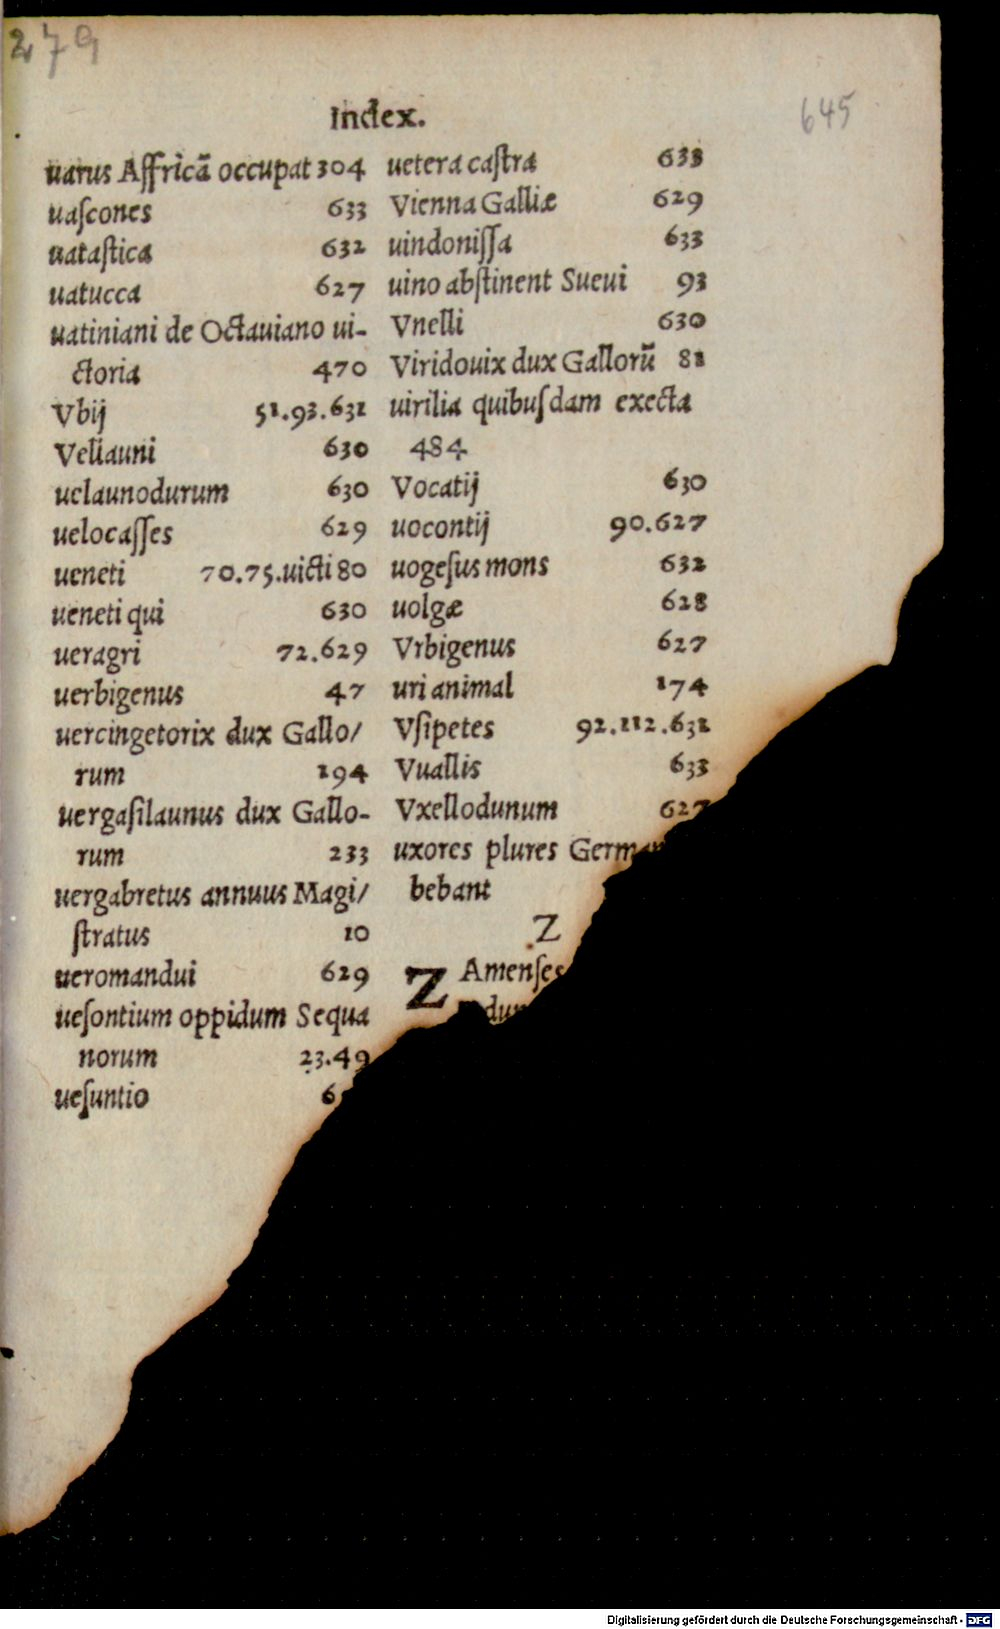 279
645
Index.
uarus Affricā occupat 304
uaſcones 633
uataſtica 632
uatucca 627
uatiniani de Octauiano ui-
ctoria 470
Vbij 51.93.631
Veliauni 630
uelaunodurum 630
uelocaſſes 629
ueneti 70.75.uicti 80
ueneti qui 630
ueragri 72.629
uerbigenus 47
uercingetorix dux Gallo/
rum 194
uergaſilaunus dux Gallo-
rum 233
uergabretus annuus Magi/
ſtratus 10
ueromandui 629
ueſontium oppidum Sequa
norum 23.49
ueſuntio 6
uetera caſtra 633
Vienna Galliæ 629
uindoniſſa 633
uino abſtinent Sueui 93
Vnelli 630
Viridouix dux Gallorū 81
uirilia quibuſdam execta
484
Vocatij 630
uocontij 90.627
uogeſus mons 632
uolgæ 628
Vrbigenus 627
uri animal 174
Vſipetes 92.112.631
Vuallis 633
Vxellodunum 627
uxores plures German
bebant
Z
ZAmenſes
Digitalisierung gefördert durch die Deutsche Forschungsgemeinschaft - DFG